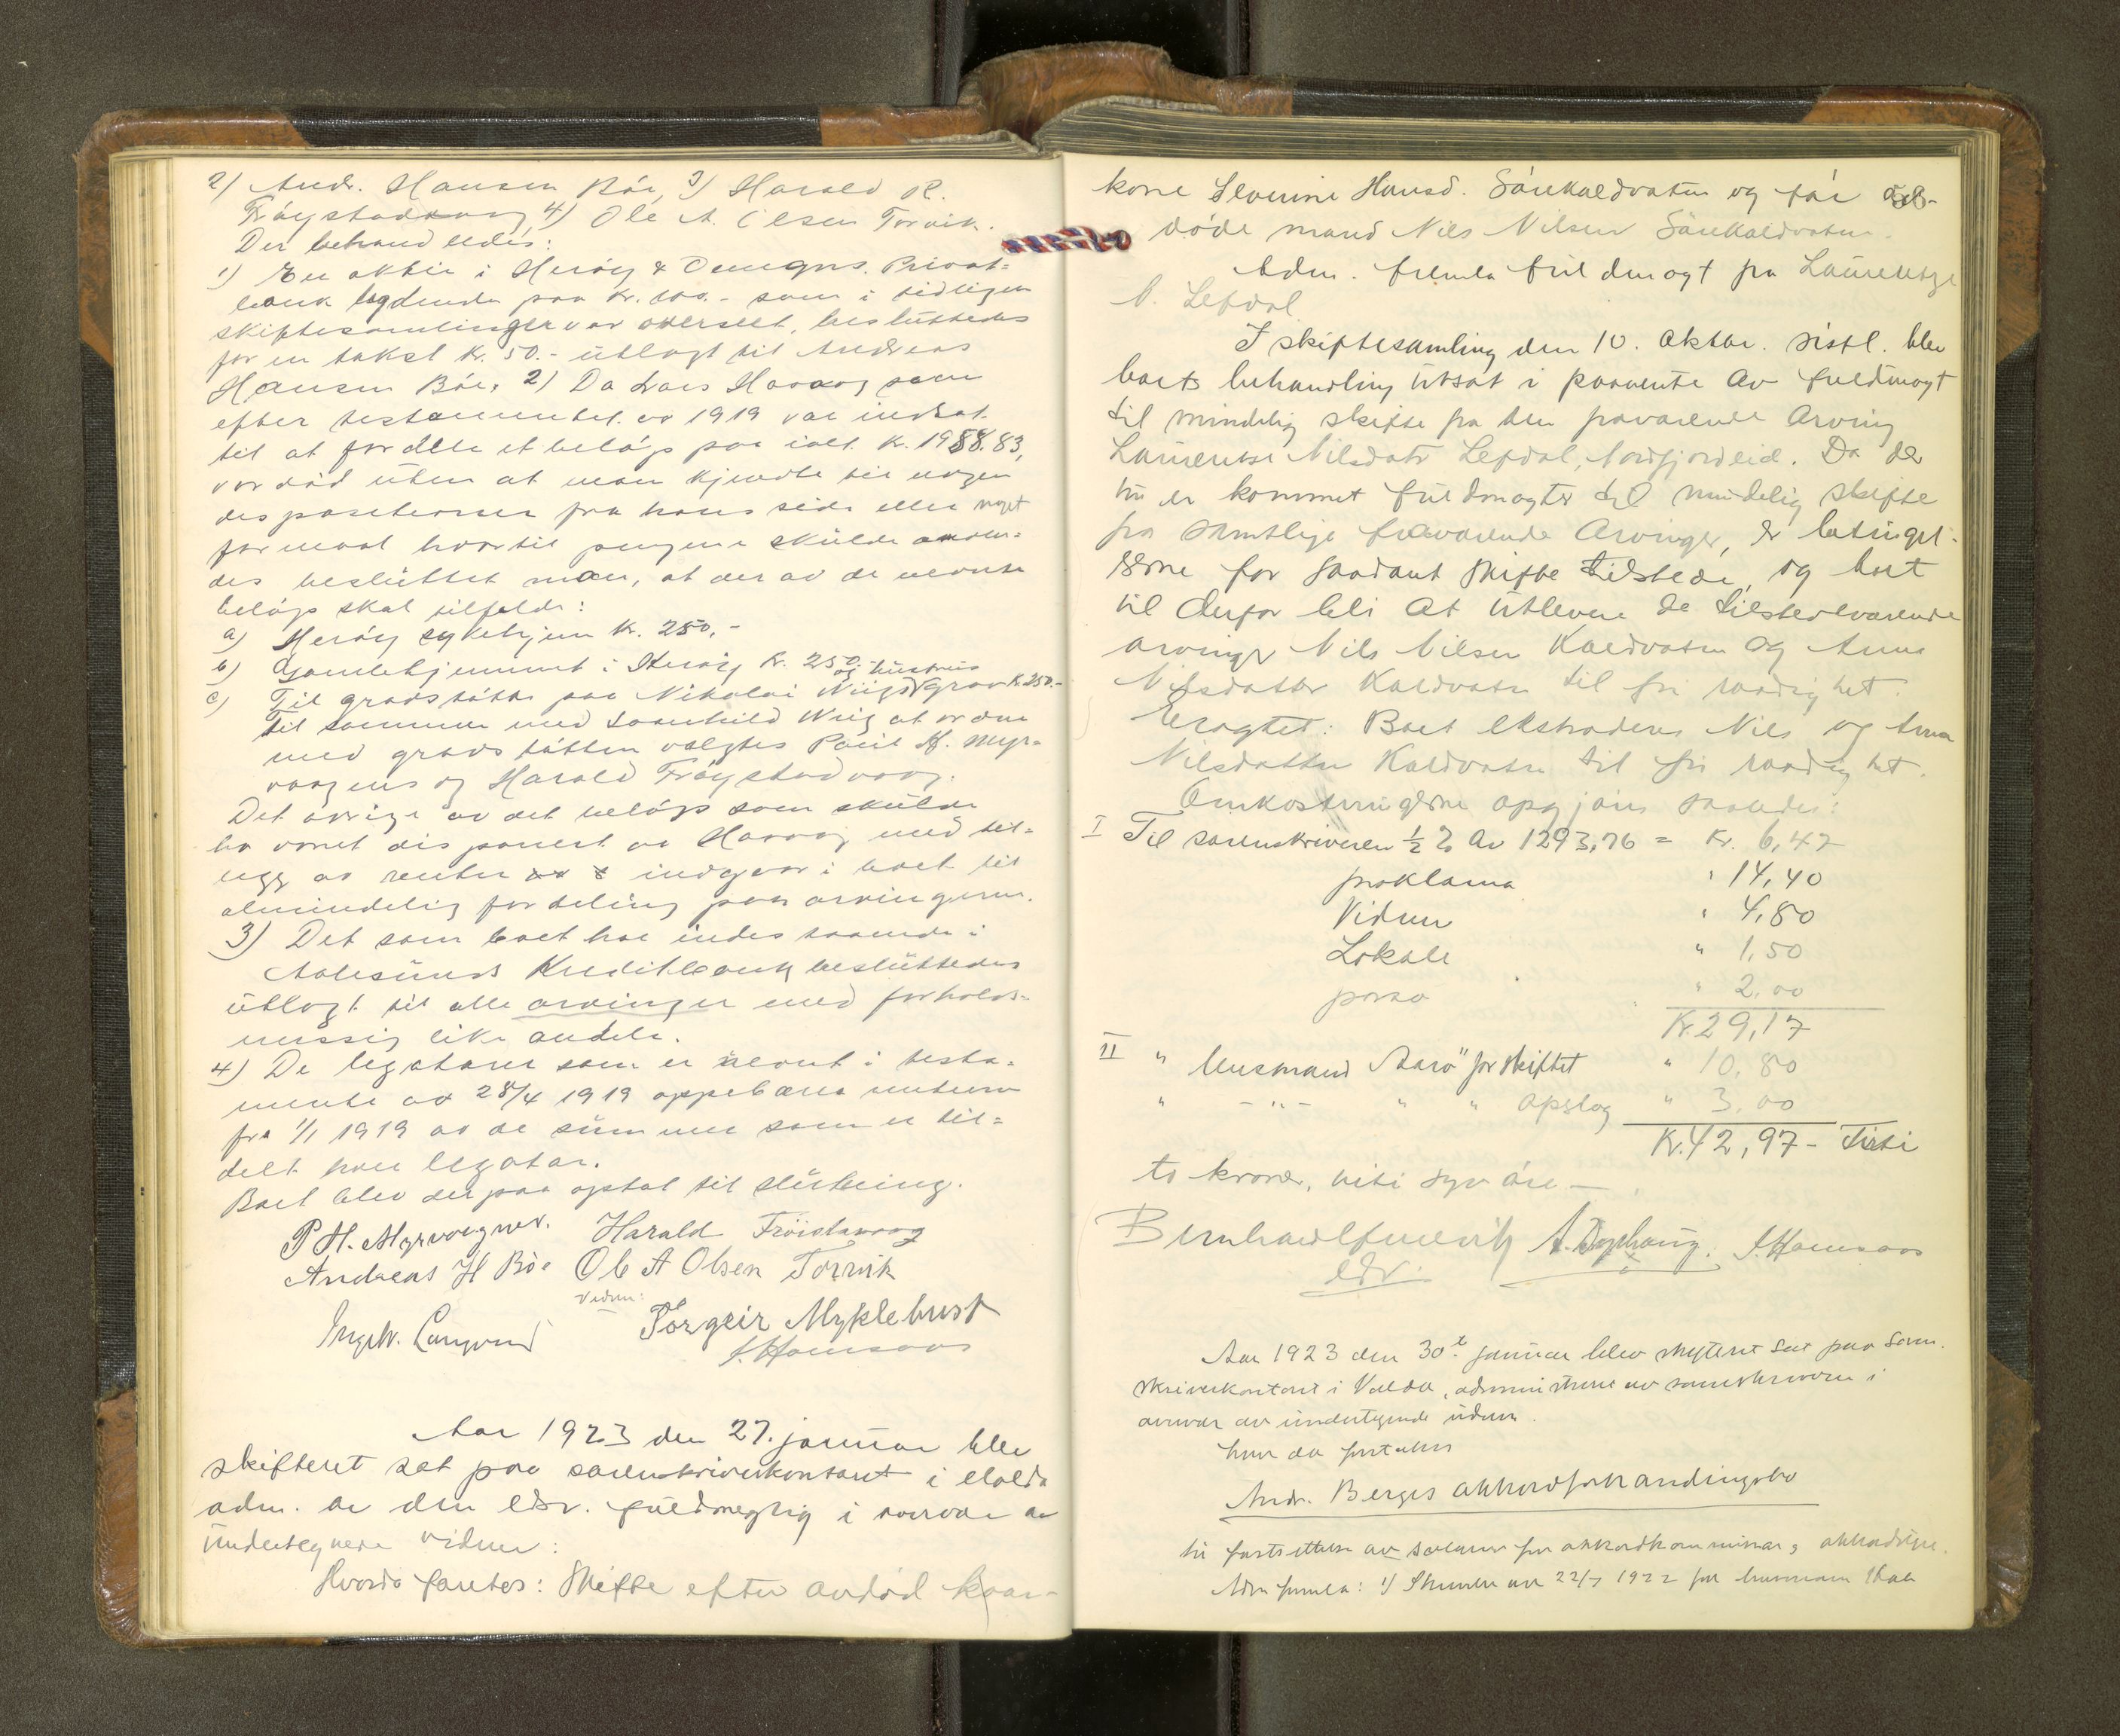 2) Andr. Hansen Böe, 3) Harald R.
Fröystadvaag 4) Ole A. Olsen Torvik.
Der behandledes:
1) En aktie i Heröy & Omegns. Privat=
bank lydende paa kr. 100.- som i tidligere
skiftesamlinger var overseet, besluttedes
for en takst kr. 50.- utlagt til Andreas
Hansen Böe. 2) Da Lars Havaag som
efter testamentet av 1919 var indsat
til at fordele et belöp paa ialt kr. 1958.83,
var död uten at man kjendte til nogen
disposisjoner fra hans side eller noget
formaal hvortil pengene skulde anven=
des besluttet man, at der av de nevnte
belöp skal tilfalde:
a) Heröy sykehjem kr. 250,-
b) Gamlehjemmet i Heröy kr. 250.-
c) Til gravstötte paa Nikolai Niigs og hustrus grav kr. 250.-
Til sammen med Niig at ordne
med gravstötten valgtes Paul H. Myr-
vaagnes og Harald Fröystadvaag.
Det övrige av det belöp som skulde
ha vœret disponert av Havaag med til=
legg av renter indgaar i boet til
almindelig fordeling paa arvingerne.
3) Det som boet har indestaaende i
Aalesunds Kreditbank besluttedes
utlagt til alle arvinger med forholds-
mœssig like andele.
4) De legatarer som er nevnt i testa=
mente av 28/4 1919 oppebœrer renterne
fra 1/1 1919 av de summer som er til=
delt hver legatar.
Boet blev derpaa optat til slutning.
P H. Myrvaagnes. Harald Fröistavaag
Andreas H Böe Ole A Olsen Torvik
Vidne:
Ingv. Langvand Torgeir Myklebust
S. Hamsaas
Aar 1923 den 27. januar blev
skifteret sat paa sorenskriverkontoret i Volda
adm. av den edsv. fuldmegtig i nœrvœr av
undertegnede vidner:
Hvorda foretoges: Skifte efter avdöd koar-
kone Severine Hansd. Sörekaldvatn og för av-
döde mand Nils Nilsen Sörekaldvatn.
Adm. fremla fuldmagt fra Laurentze
N. Lefdal
I skiftesamling den 10. oktbr. sistl. blev
boets behandling utsat i paavente av fuldmagt
til mindelig skifte fra den fravœrende arving
Laurentse Nilsdatr Lefdal, Nordfjordeid. Da der
nu er kommet fuldmagter til mindelig skifte
fra samtlige fravœrende arvinger, er betingel-
serne for saadant skifte tilstede, og boet
vil derfor bli at utlevere de tilstedevœrende
arvinger Nils Nilsen Kaldvatn og Anna
Nilsdatter Kaldvatn til fri raadighet.
Eragtet: Boet ekstraderes Nils og Anna
Nilsdatter Kaldvatn til fri raadighet.
Omkostningerne opgjöres saaledes:
I Til sorenskriveren ½ % av 1293,76 = Kr. 6,47
proklama " 14,40
Vidner " 4,80
Lokale " 1,50
porto " 2,00
Kr. 29,17
II " lensmand Aarö for skiftet " 10,80
" -"- " " opslag " 3,00
Kr. 42,97 - Firti
to kroner, niti syv öre -
S. Hamsaas
edsv.
Aar 1923 den 30t januar blev skifteret sat paa soren-
skriverkontoret i Volda, administrert av sorenskriveren i
nœrvœr av undertegnede vidner.
hvor da foretokes
Andr. Berges akkordforhandlingsbo
til fastsettelse av salœrer for akkordkommissœr,
Adm fremla: 1) Skrivelse av 22/7 1922 fra